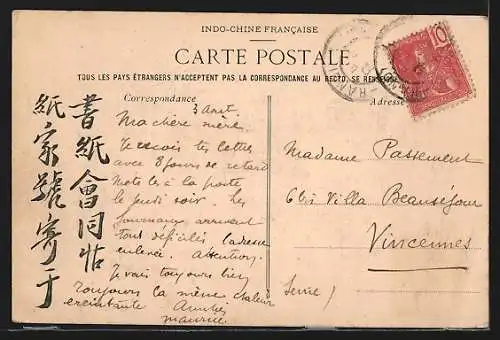 INDO-CHINE FRANÇAISE
CARTE POSTALE
TOUS LES PAYS ÉTRANGERS N'ACCEPTENT PAS LA CORRESPONDANCE AU RECTO, SE RENSEIGNER
Correspondance
Adresse
10
3 Aout
Ma chère mère,
Je reçois tes lettres
avec 8 jours de retard
Mets les à la poste
le jeudi soir. Les
souvenirs arrivent
tout
l'adresse
enlevée. Attention.
Je vais toujours bien
toujours la même chaleur
éreintante
Maurice
書紙會同帖
紙家號寄于
Madame Passement
6 bis Villa Beauséjour
Vincennes
Seine)